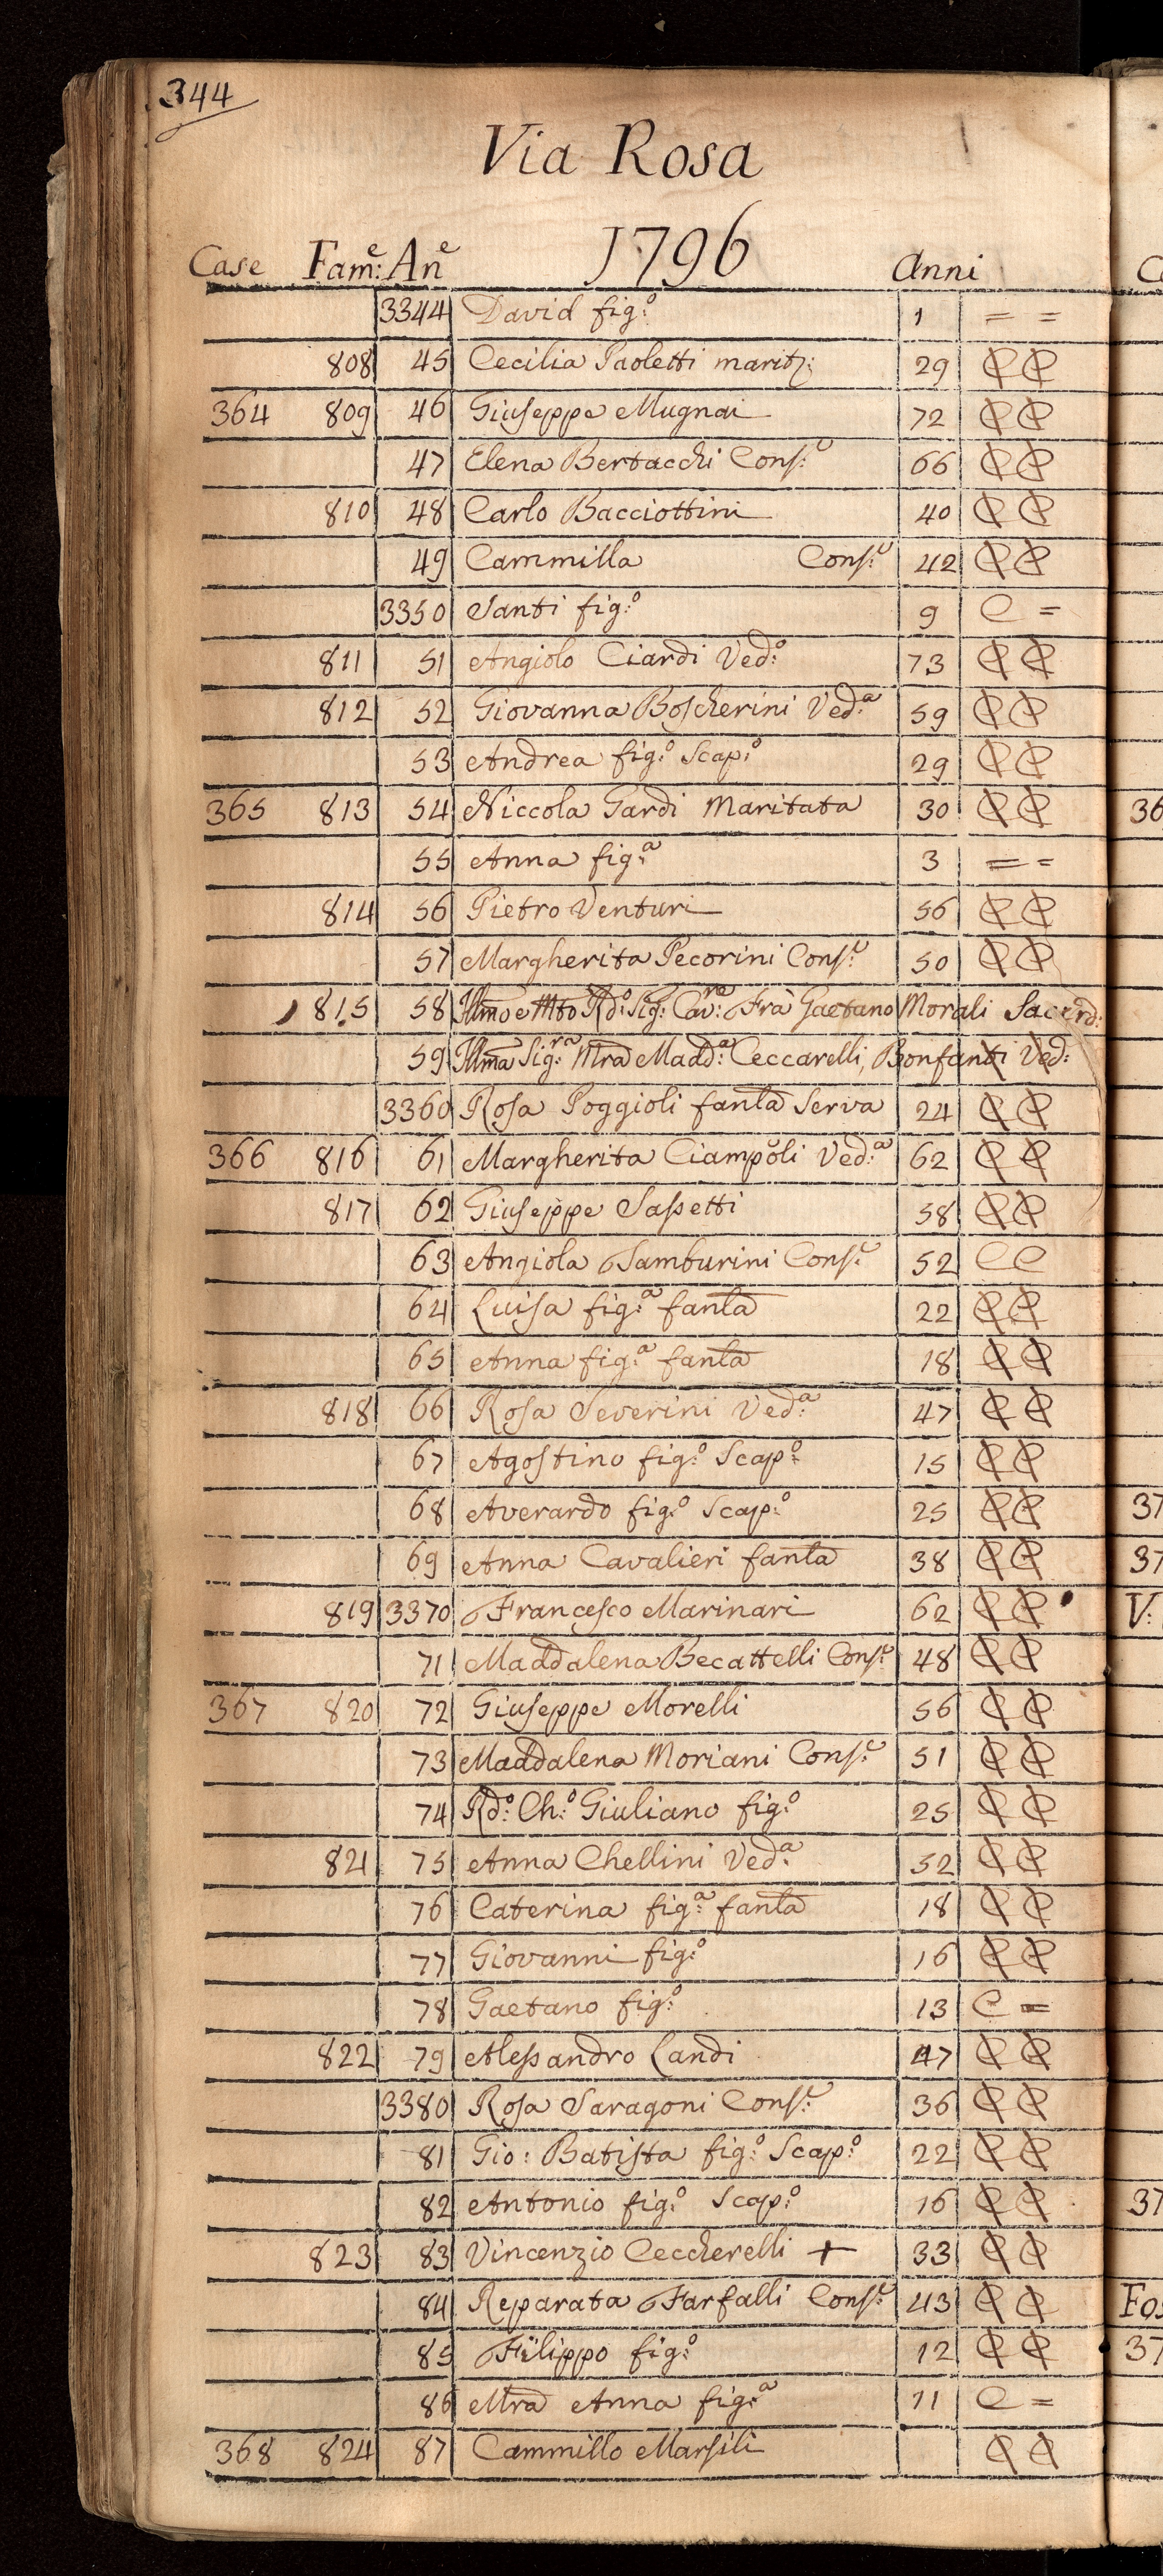 344
Via Rosa
1796
Case Fam:e An:e Anni
3344 David fig:o 1 = =
808 45 Cecilia Paoletti marit: 29 C C
364 809 46 Giuseppe Mugnai 72 C C
47 Elena Bertacchi Cons:e 66 C C
810 48 Carlo Bacciottini 40 C C
49 Cammilla Cons:e 42 C C
3350 Santi fig:o 9 C =
811 51 Angiolo Ciardi Ved:o 73 C C
812 52 Giovanna Boscherini Ved:a 59 C C
53 Andrea fig:o Scap:o 29 C C
365 813 54 Niccola Gardi Maritata 30 C C
55 Anna fig:a 3 = =
814 56 Pietro Venturi 56 C C
57 Margherita Pecorini Cons:e 50 C C
815 58 Illmo e Mto Rd:o Sig: Cav:re Frà Gaetano Morali Sacerd:
59 Illma Sig:ra Mra Madd:a Ceccarelli, Bonfanti Ved:
3360 Rosa Poggioli fanla Serva 24 C C
366 816 61 Margherita Ciampoli Ved:a 62 C C
817 62 Giuseppe Sassetti 58 C C
63 Angiola Tamburini Cons:e 52 C C
64 Luisa fig:a fanla 22 C C
65 Anna fig:a fanla 18 C C
818 66 Rosa Severini Ved:a 47 C C
67 Agostino fig:o Scap:o 15 C C
68 Averardo fig:o Scap:o 25 C C
69 Anna Cavalieri fanla 38 C C
819 3370 Francesco Marinari 62 C C
71 Maddalena Becattelli Cons:e 48 C C
367 820 72 Giuseppe Morelli 56 C C
73 Maddalena Moriani Cons:e 51 C C
74 Rd:o Ch:o Giuliano fig:o 25 C C
821 75 Anna Chellini Ved:a 52 C C
76 Caterina fig:a fanla 18 C C
77 Giovanni fig:o 16 C C
78 Gaetano fig:o 13 C =
822 79 Alessandro Landi 47 C C
3380 Rosa Saragoni Cons:e 36 C C
81 Gio: Batista fig:o Scap:o 22 C C
82 Antonio fig:o Scap:o 16 C C
823 83 Vincenzio Ceccherelli + 33 C C
84 Reparata Farfalli Cons:e 43 C C
85 Filippo fig:o 12 C C
86 Mra Anna fig:a 11 C =
368 824 87 Cammillo Marsili C C